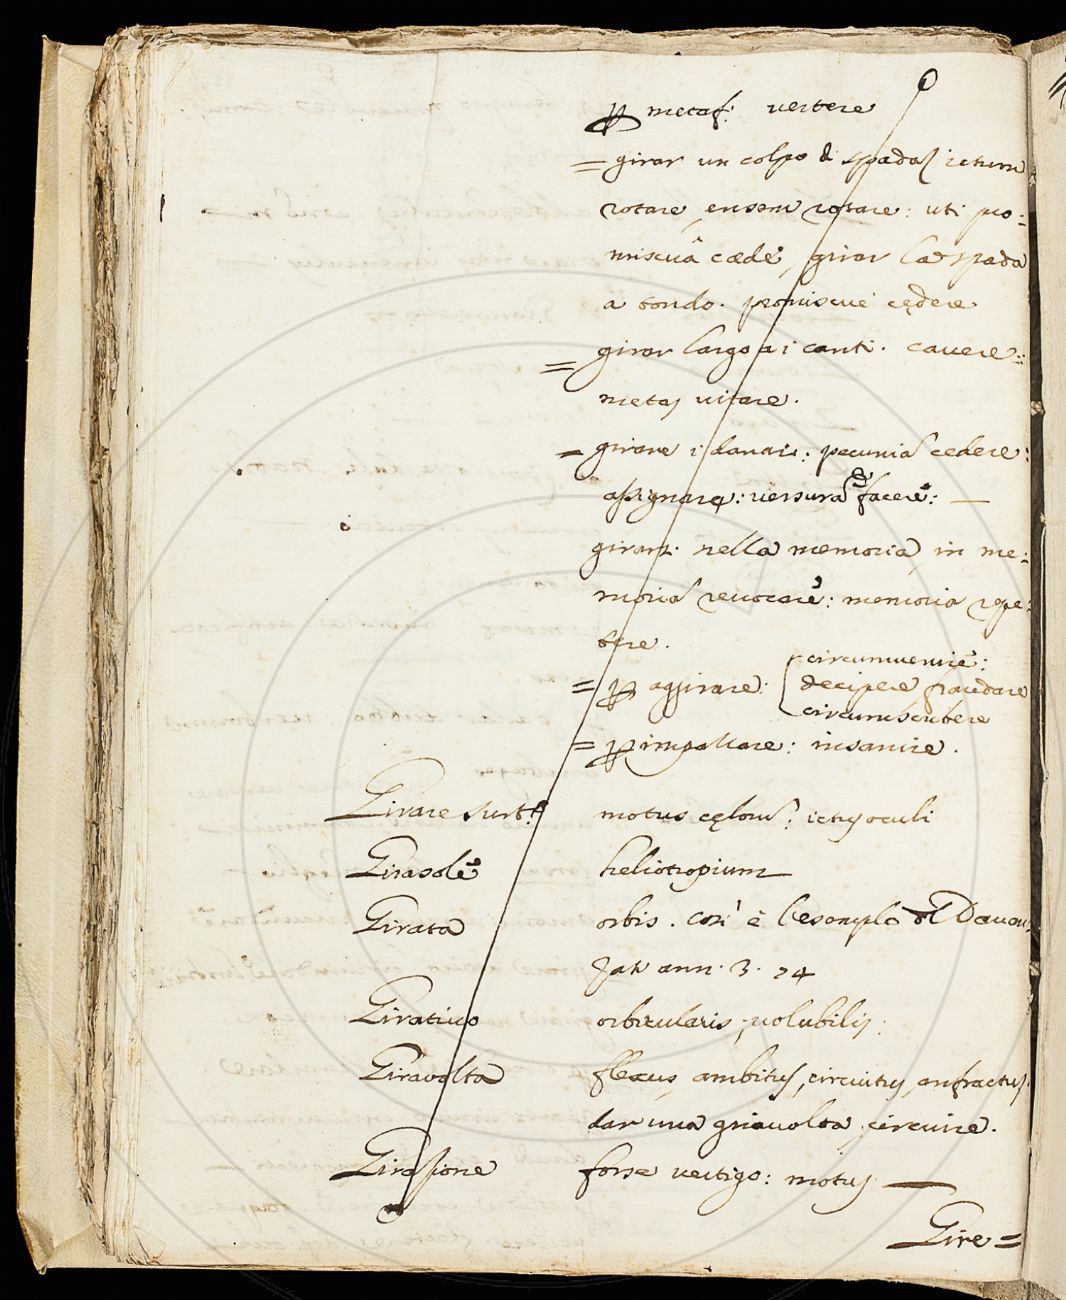 metaf: vertere
= girar un colpo di spada, ictum
rotare, ensem rotare: uti pro=
miscuâ cæde, girar la spada
a tondo. promiscuè cędere
= girar largo ai canti. cavere:
metas vitare.
= girare i danari: pecunia cedere:
assignare: versura facere: —
girar nella memoria, in me:
moria revocare: memoria repe:
tere.
= aggirare: circumvenire:
decipere, fraudare
circumscribere
= impazzare: insanire.
Girare sust.º motus cęlorum: ictus oculi
Girasole heliotropium
Girata orbis. così è l'esemplo del Davan:
zati ann. 3. 74
Girativo orbicularis, volubilis:
Giravolta flexus, ambitus, circuitus, anfractus.
dar una griavolta, circuire.
Girazione forse vertigo: motus —
Gire =